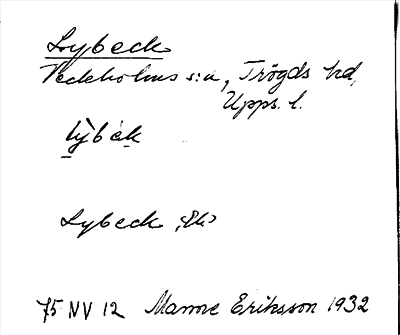 Lybeck
Veckholms s:n, Trögds hd,
Upps. l.
lỳbék
Lybeck
75 NV 12 Manne Eriksson 1932